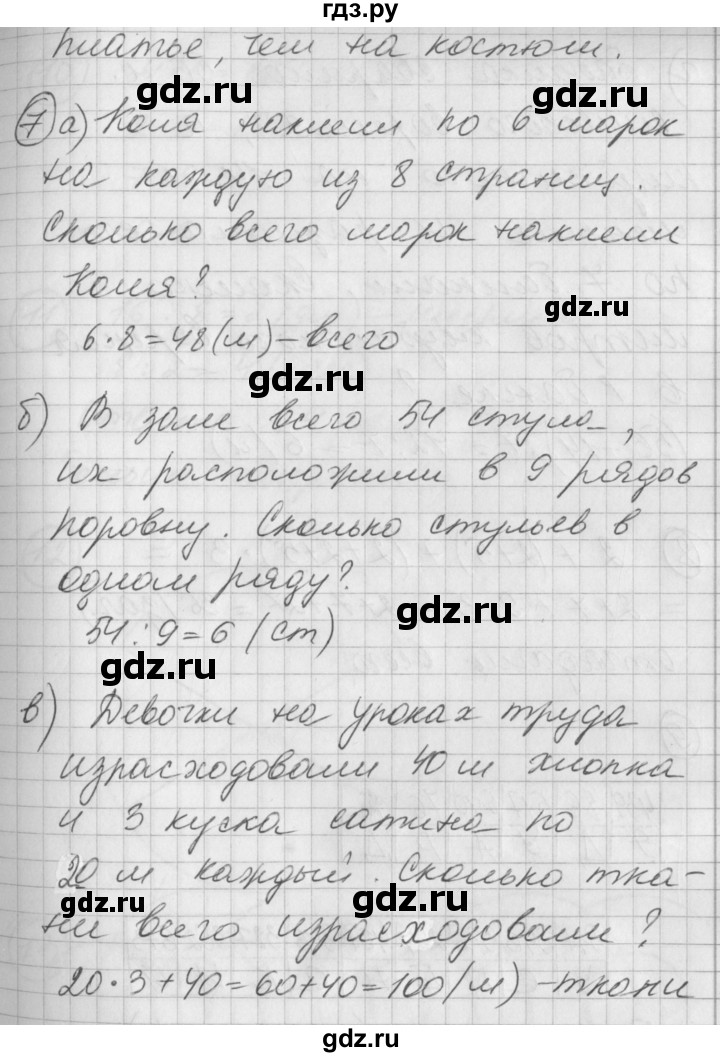 гдз.ру
платье, чем на костюм.
gdz.ru
gdz.ru
7 а) Коля наклеил по 6 марок
на каждую из 8 страниц.
Сколько всего марок наклеил
Коля?
gdz.ru
6·8=48(м)-всего
gdz.ru
б) В зале всего 54 стула,
их расположили в 9 рядов
поровну. Сколько стульев в
одном ряду?
gdz.ru
54:9=6 (ст)
gdz.ru
в) Девочки на уроках труда
израсходовали 40 м хлопка
и 3 куска сатина по
20 м каждый. Сколько тка-
gdz.ru
gdz.ru
ни всего израсходовали?
20·3+40=60+40=100(м)-ткани
gdz.ru